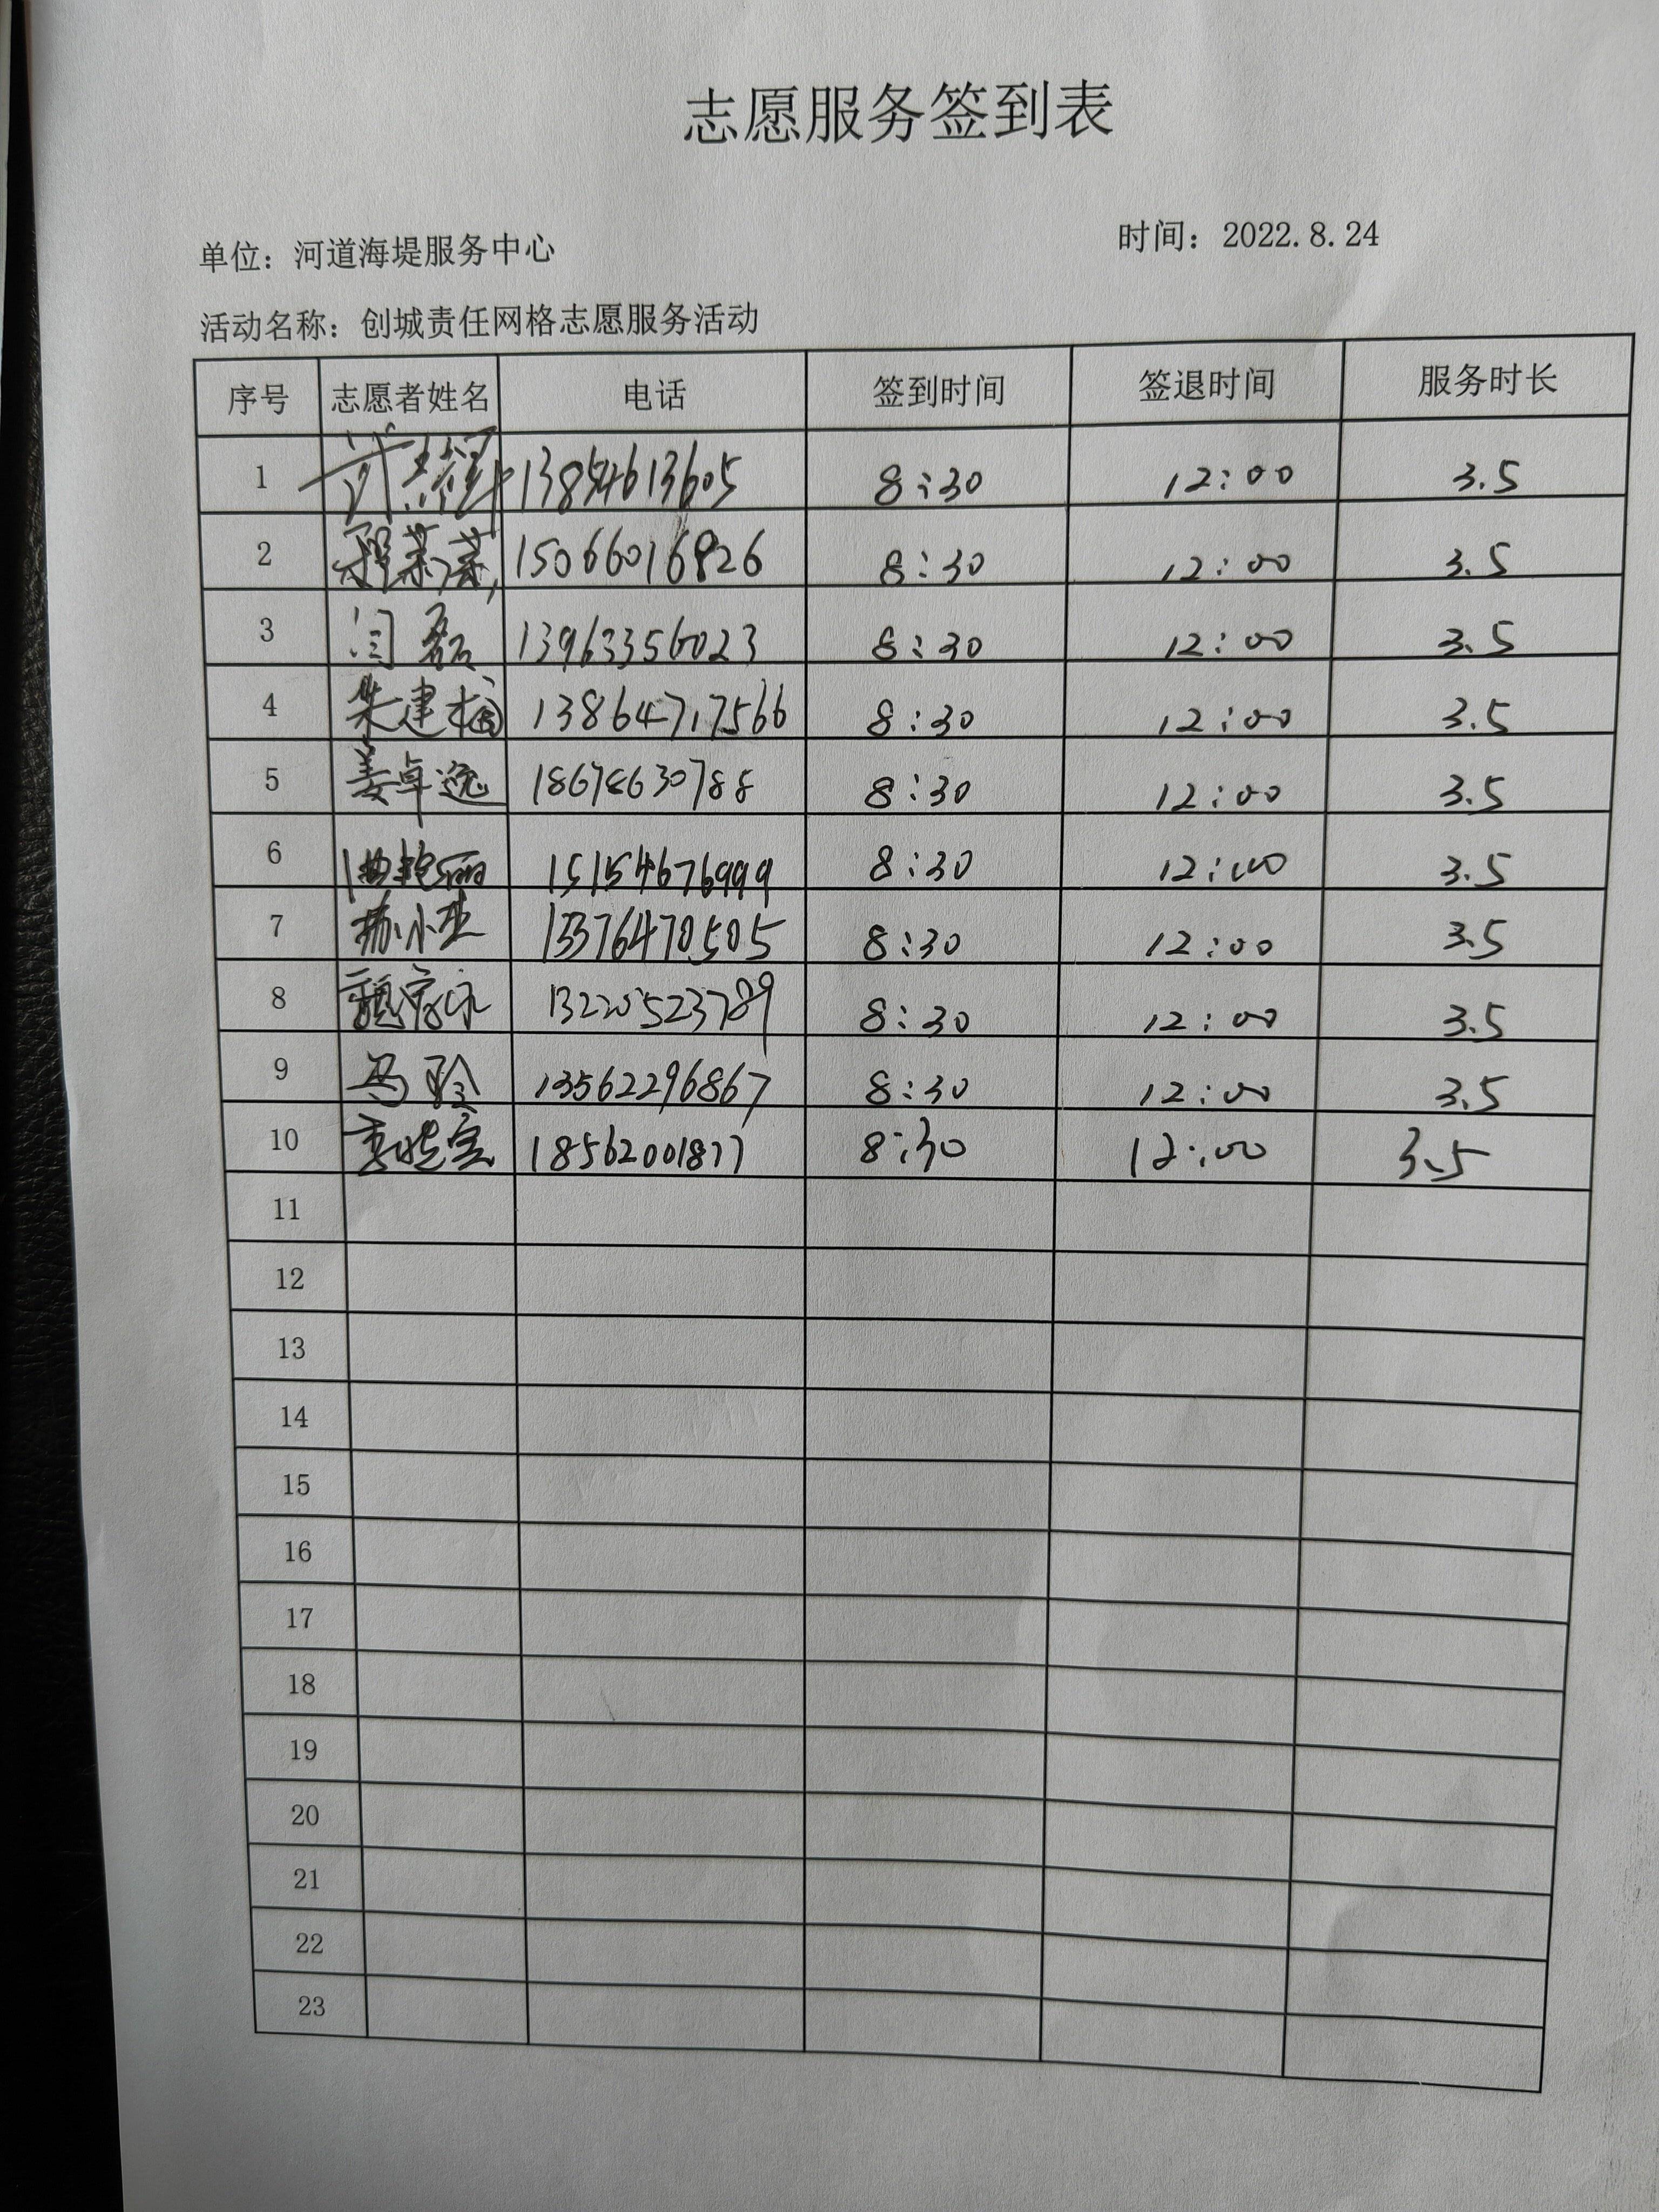 志愿服务签到表
单位：河道海堤服务中心 时间：2022.8.24
活动名称：创城责任网格志愿服务活动
序号 志愿者姓名 电话 签到时间 签退时间 服务时长
1 13854613605 8:30 12:00 3.5
2 程英英 15066016926 8:30 12:00 3.5
3 闫磊 13963356023 8:30 12:00 3.5
4 朱建梅 13864717566 8:30 12:00 3.5
5 姜卓远 18678630788 8:30 12:00 3.5
6 曲艳丽 15154676999 8:30 12:00 3.5
7 苏小业 13376470505 8:30 12:00 3.5
8 13220523789 8:30 12:00 3.5
9 马玲 13562296867 8:30 12:00 3.5
10 李晓宝 18562001877 8:30 12:00 3.5
11
12
13
14
15
16
17
18
19
20
21
22
23